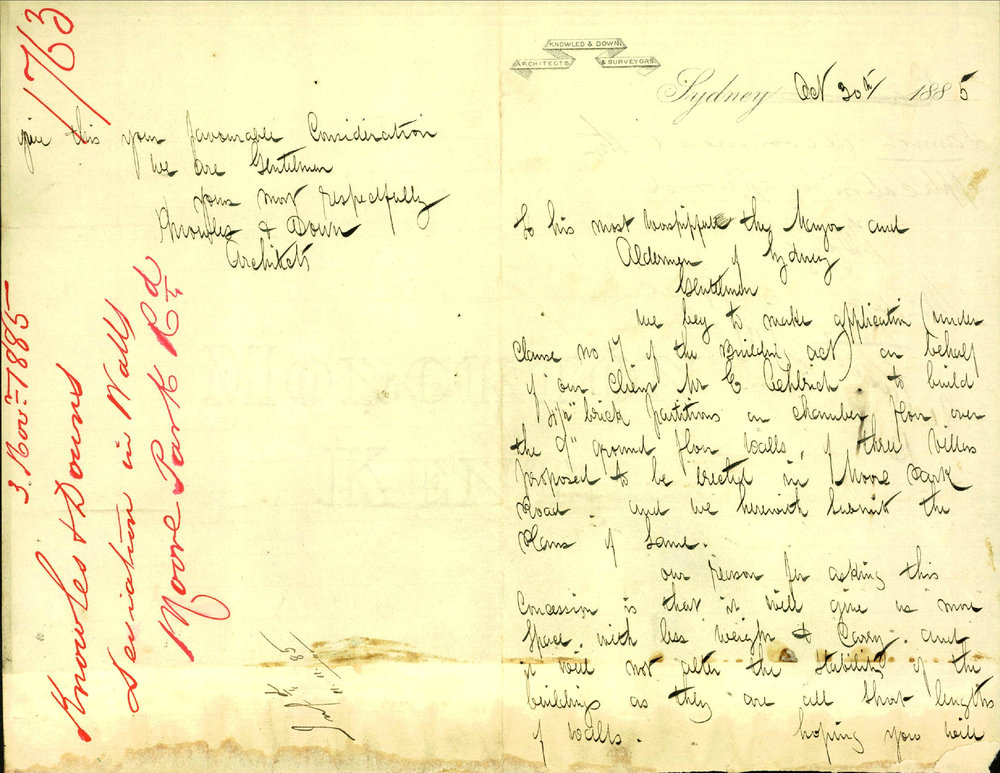 KNOWLES & DOWN,
ARCHITECTS & SURVEYORS
Sydney Oct 30th 1885
To his most worshipfull the Mayor and
Aldermen of Sydney
Gentelmen
we beg to make application (under
Clause no 17 of the Building act) on behalf
of our client Mr C to build
4½" brick partitions on chamber floor over
the 9" ground floor walls, of three villas
proposed to be erected in Moore Park
Road. and we herewith submit the
Plans of Same.
our reason for asking this
Concession is that it will give us more
Space with less weight & Carry. and
it will not alter the stability of the
buildings as they are all short lengths
of walls. hoping you will
give this your favourable Consideration
we are Gentelmen
yours most respectfully
Knowles & Down
Architects
1763
3. Novr. 1885
Knowles & Downs
Deviation in Walls
Moore Park Rd